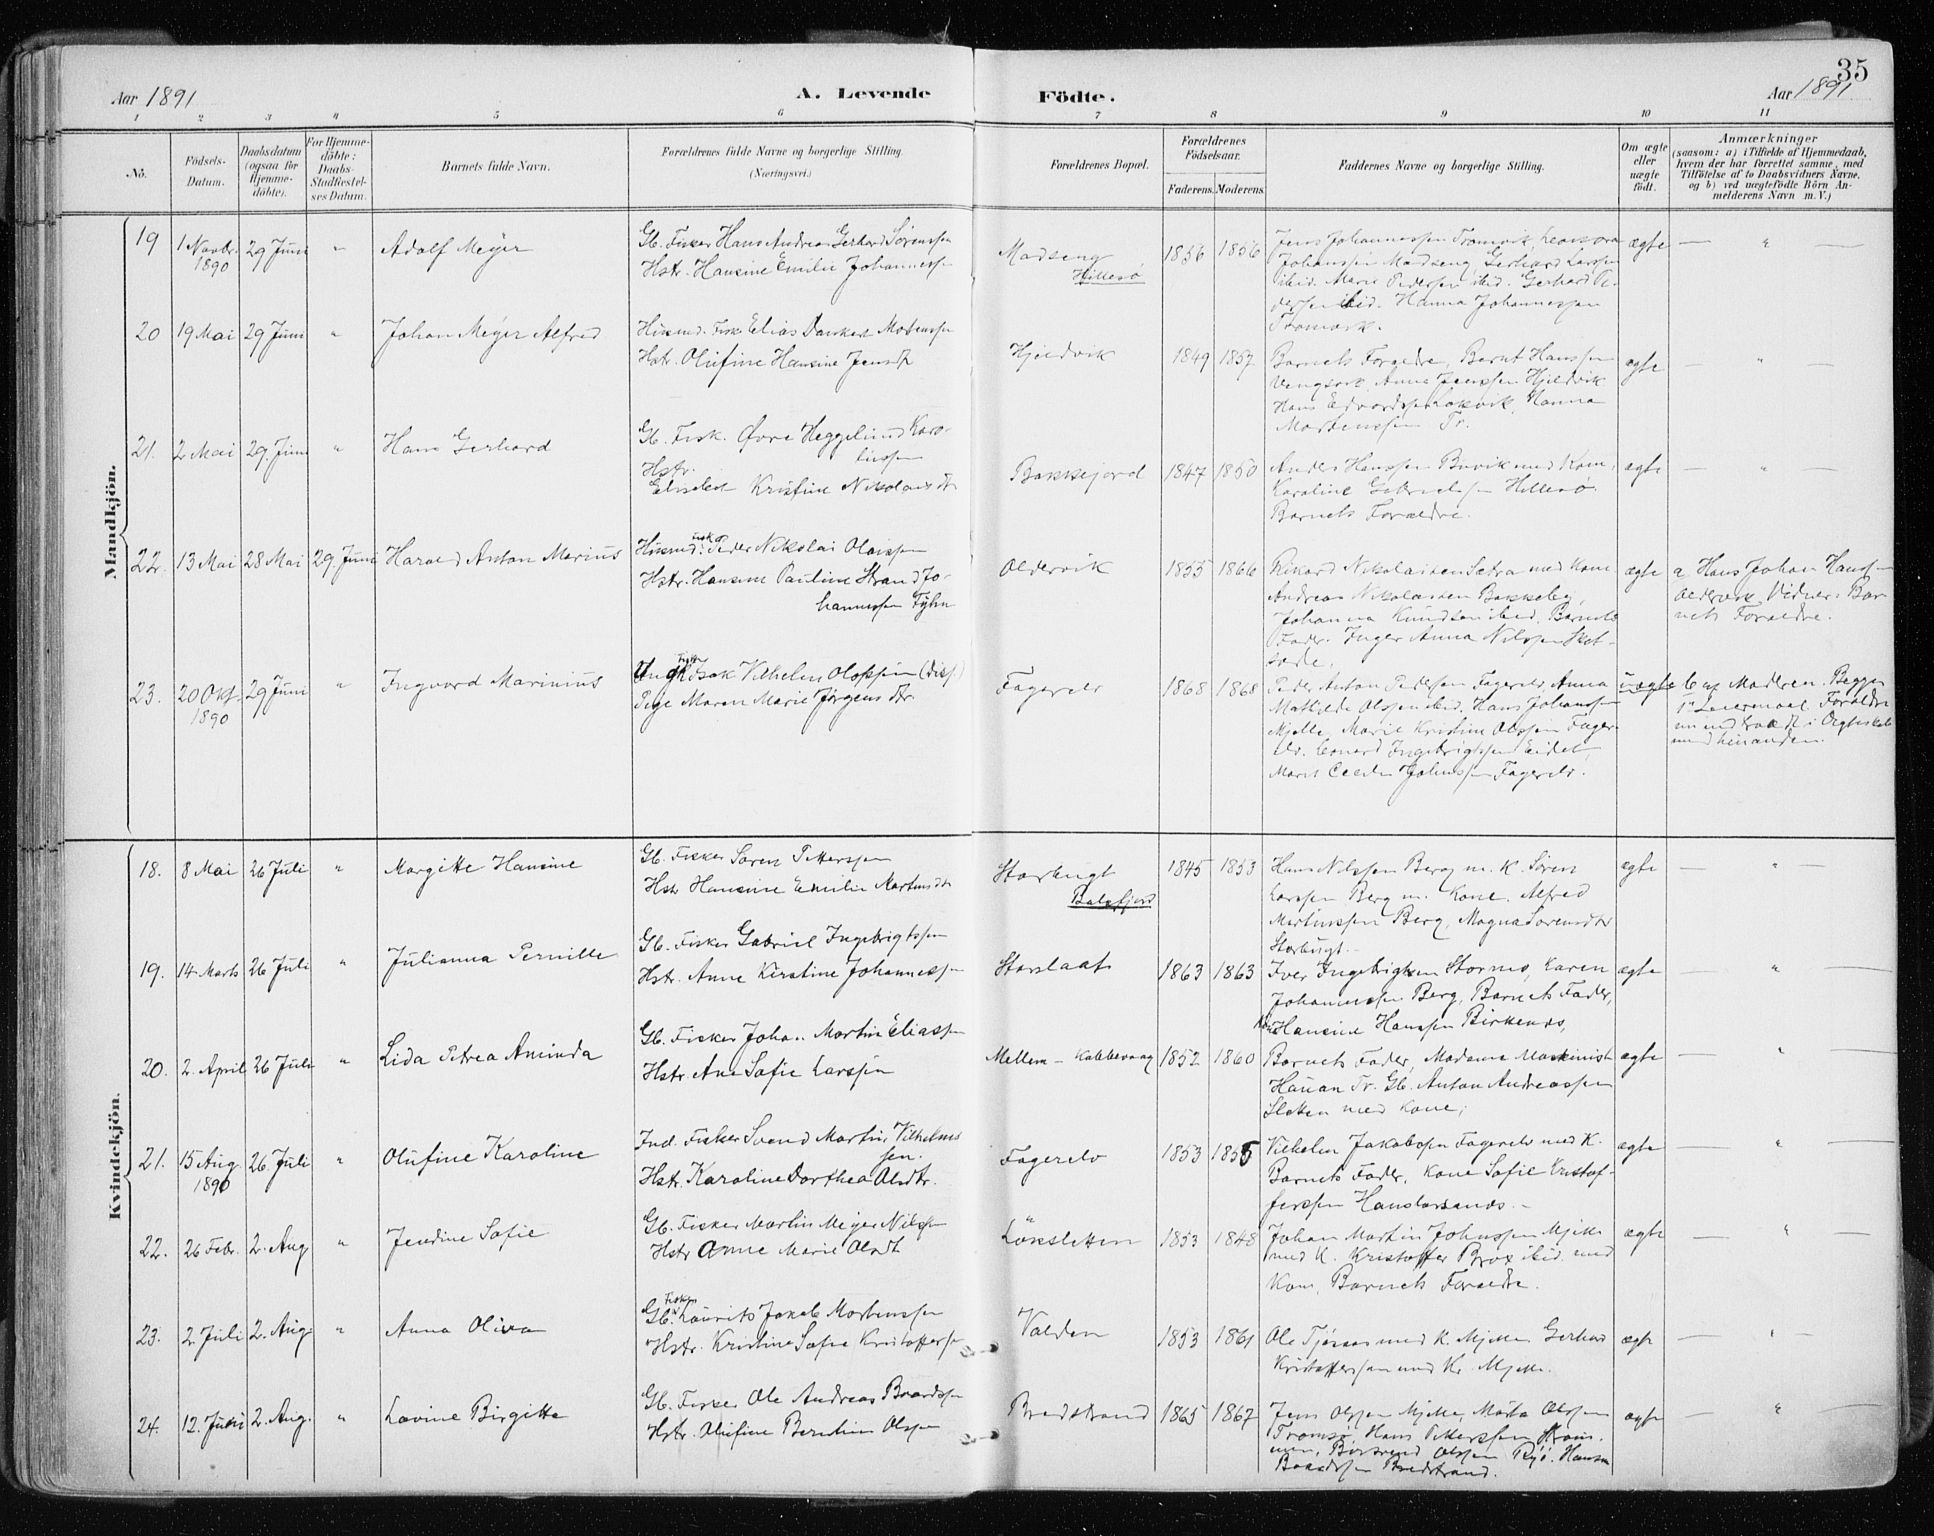 35
Aar 1891
A. Levende
Födte.
Aar 1891
1 2 3 4 5 6 7 8 9 10 11
No.
Födsels-Datum.
Daabsdatum (ogsaa for Hjemme-döbte).
For Hjemme-döbte: Daabs-Stadfæstel-ses Datum.
Barnets fulde Navn.
Forældrenes fulde Navne og borgerlige Stilling. (Næringsvei.)
Forældrenes Bopæl.
Forældrenes Födselsaar.
Faderens. Moderens.
Faddernes Navne og borgerlige Stilling.
Om ægte eller uægte födt.
Anmærkninger
(saasom: a) i Tilfælde af Hjemmedaab,
hvem der har forrettet samme, med
Tilföielse af to Daabsvidners Navne,
og b) ved uægtefödte Börn An-
melderens Navn m. V.)
Mandkjön.
19 1 Novbr. 1890 29 Juni " Adolf Meyer
Gb. Fisker Hans Andreas Gerhard Sørenssen
Hstr. Hansine Emilie Johannessen
Madseng
Hillesø
1856 1856
Jens Johannessen Tromvik, Leonora
Johanssen Madseng, Gerhard Larssen
ibid. Marie Pedersen ibid. Gerhard Pe-
dersen ibid. Hanna Johannessen
Tromvik.
ægte — " —
20 19 Mai 29 Juni " Johan Meyer Alfred
Husmd. Fisk. Elias Dankert Mortenssen
Hstr. Olufine Hansine Jensdtr
Hjeldvik 1849 1857
Barnets Forældre, Bernt Hanssen
Vengsøy, Anna Jenssen Hjeldvik
Hans Edvardssen Laxvik, Hanna
Mortenssen Tr.
ægte — " —
21. 2 Mai 29. Juni " Hans Gerhard
Gb. Fisk. Øvre Heggelund Karo-
liussen
Hstr.
Elisabet Kristine Nikolaisdtr
Bakkejord 1847 1850
Anders Hanssen Buvik med Kone,
Karoline Gabrielssen Hillesø.
Barnets Forældre.
ægte — " —
22. 13 Mai 28 Mai 29 Juni Harald Anton Marius
Husmd. Fisker Peder Nikolai Olaissen
Hstr. Hansine Pauline Strand Jo-
hannessen Fyhn
Oldervik 1855 1866
Rikard Nikolaisen Sætra med Kone
Andreas Nikolaisen Bakkeby,
Johanna Knudsen ibid. Barnets
Fader. Inger Anna Nilssen Skot-
ægte
a Hans Johan Hanssen
Oldervik. Vidner: Bar-
nets Forældre.
23. 20 Okt. 1890 29 Juni " Ingvard Marinius
Ungk. Fisker Isak Vilhelm Olossen (disp.)
Pige Maren Marie Jørgensdtr
Fagerelv 1868 1868
Peder Anton Pedersen Fagerelv, Anna
Mathilde Olssen ibid. Hans Johanssen
Mjelle, Marie Kristine Olssen Fager-
elv. Conard Ingebrigtssen Eidet,
Marit Johnssen Fagerelv.
uægte
b af Moderen. Begges
1ste Leiermaal. Forældre
nu indtraadt i Ægteskab
med hinanden.
Kvindekjön.
18. 8 Mai 26 Juli " Margitte Hansine
Gb. Fisker Søren Petterssen
Hstr Hansine Emilie Martinsdtr
Storbugt
Balsfjord
1845 1853
Hans Nilssen Berg m. K. Søren
Larssen Berg m. Kone. Alfred
Martinssen Berg, Magna Sørensdtr
Storbugt.
ægte — " —
19. 14 Marts 26 Juli " Julianna Pernille
Gb. Fisker Gabriel Ingebrigtssen
Hstr. Anne Kerstine Johannessen
Storslaat 1863 1863
Iver Ingebrigtsen Stornes, Karen
Johannessen Berg, Barnets Fader,
Hansine Hanssen Birkenes,
ægte — " —
20. 2. April 26 Juli " Lida Petrea Aminda
Gb. Fisker Johan Martin Eliassen
Hstr. Ane Sofie Larssen
Mellem-Kobbevaag 1852 1860
Barnets Fader, Madame Maskinist
Hauan Tr. Gb. Anton Andreassen
Sletten med Kone,
ægte — " —
21. 15 Aug. 1890 26 Juli " Olufine Karoline
Ind. Fisker Svend Martin Vilhelms
sen.
Hstr. Karoline Dorthea Olsdtr.
Fagerelv 1853 1855
Vilhelm Jakobsen Fagerelv med K.
Barnets Fader, Kone Sofie Kristof-
ferssen Hanslarsands.
ægte — " —
22. 26 Febr. 2. Aug. " Jendine Sofie
Gb. Fisker Martin Meyer Nilssen
Hstr Anne Marie Olsdt
Løksletten 1853 1848
Johan Martin Johnssen Mjelle
med K. Kristoffer Brox ibid. med
Kone, Barnets Forældre.
ægte — " —
23. 2. Juli 2. Aug. " Anna Oliva
Gb. Fisker Laurits Jakob Mortenssen
Hstr. Kristine Sofie Kristofferssen
Valden 1853 1861
Ole Tjøsaas med K. Mjelle, Gerhard
Kristofferssen med K. Mjelle.
ægte — " —
24. 12. Juni 2. Aug. " Lovine Birgitte
Gb. Fisker Ole Andreas Baardssen
Hstr. Olufine Berntine Olssen
Bredstrand 1865 1867
Jens Olssen Mjelle, Marta Olssen
Tromsø, Hans Petterssen Kam-
men, Olssen Ryø. Hanna
Baardssen Bredstrand.
ægte — " —